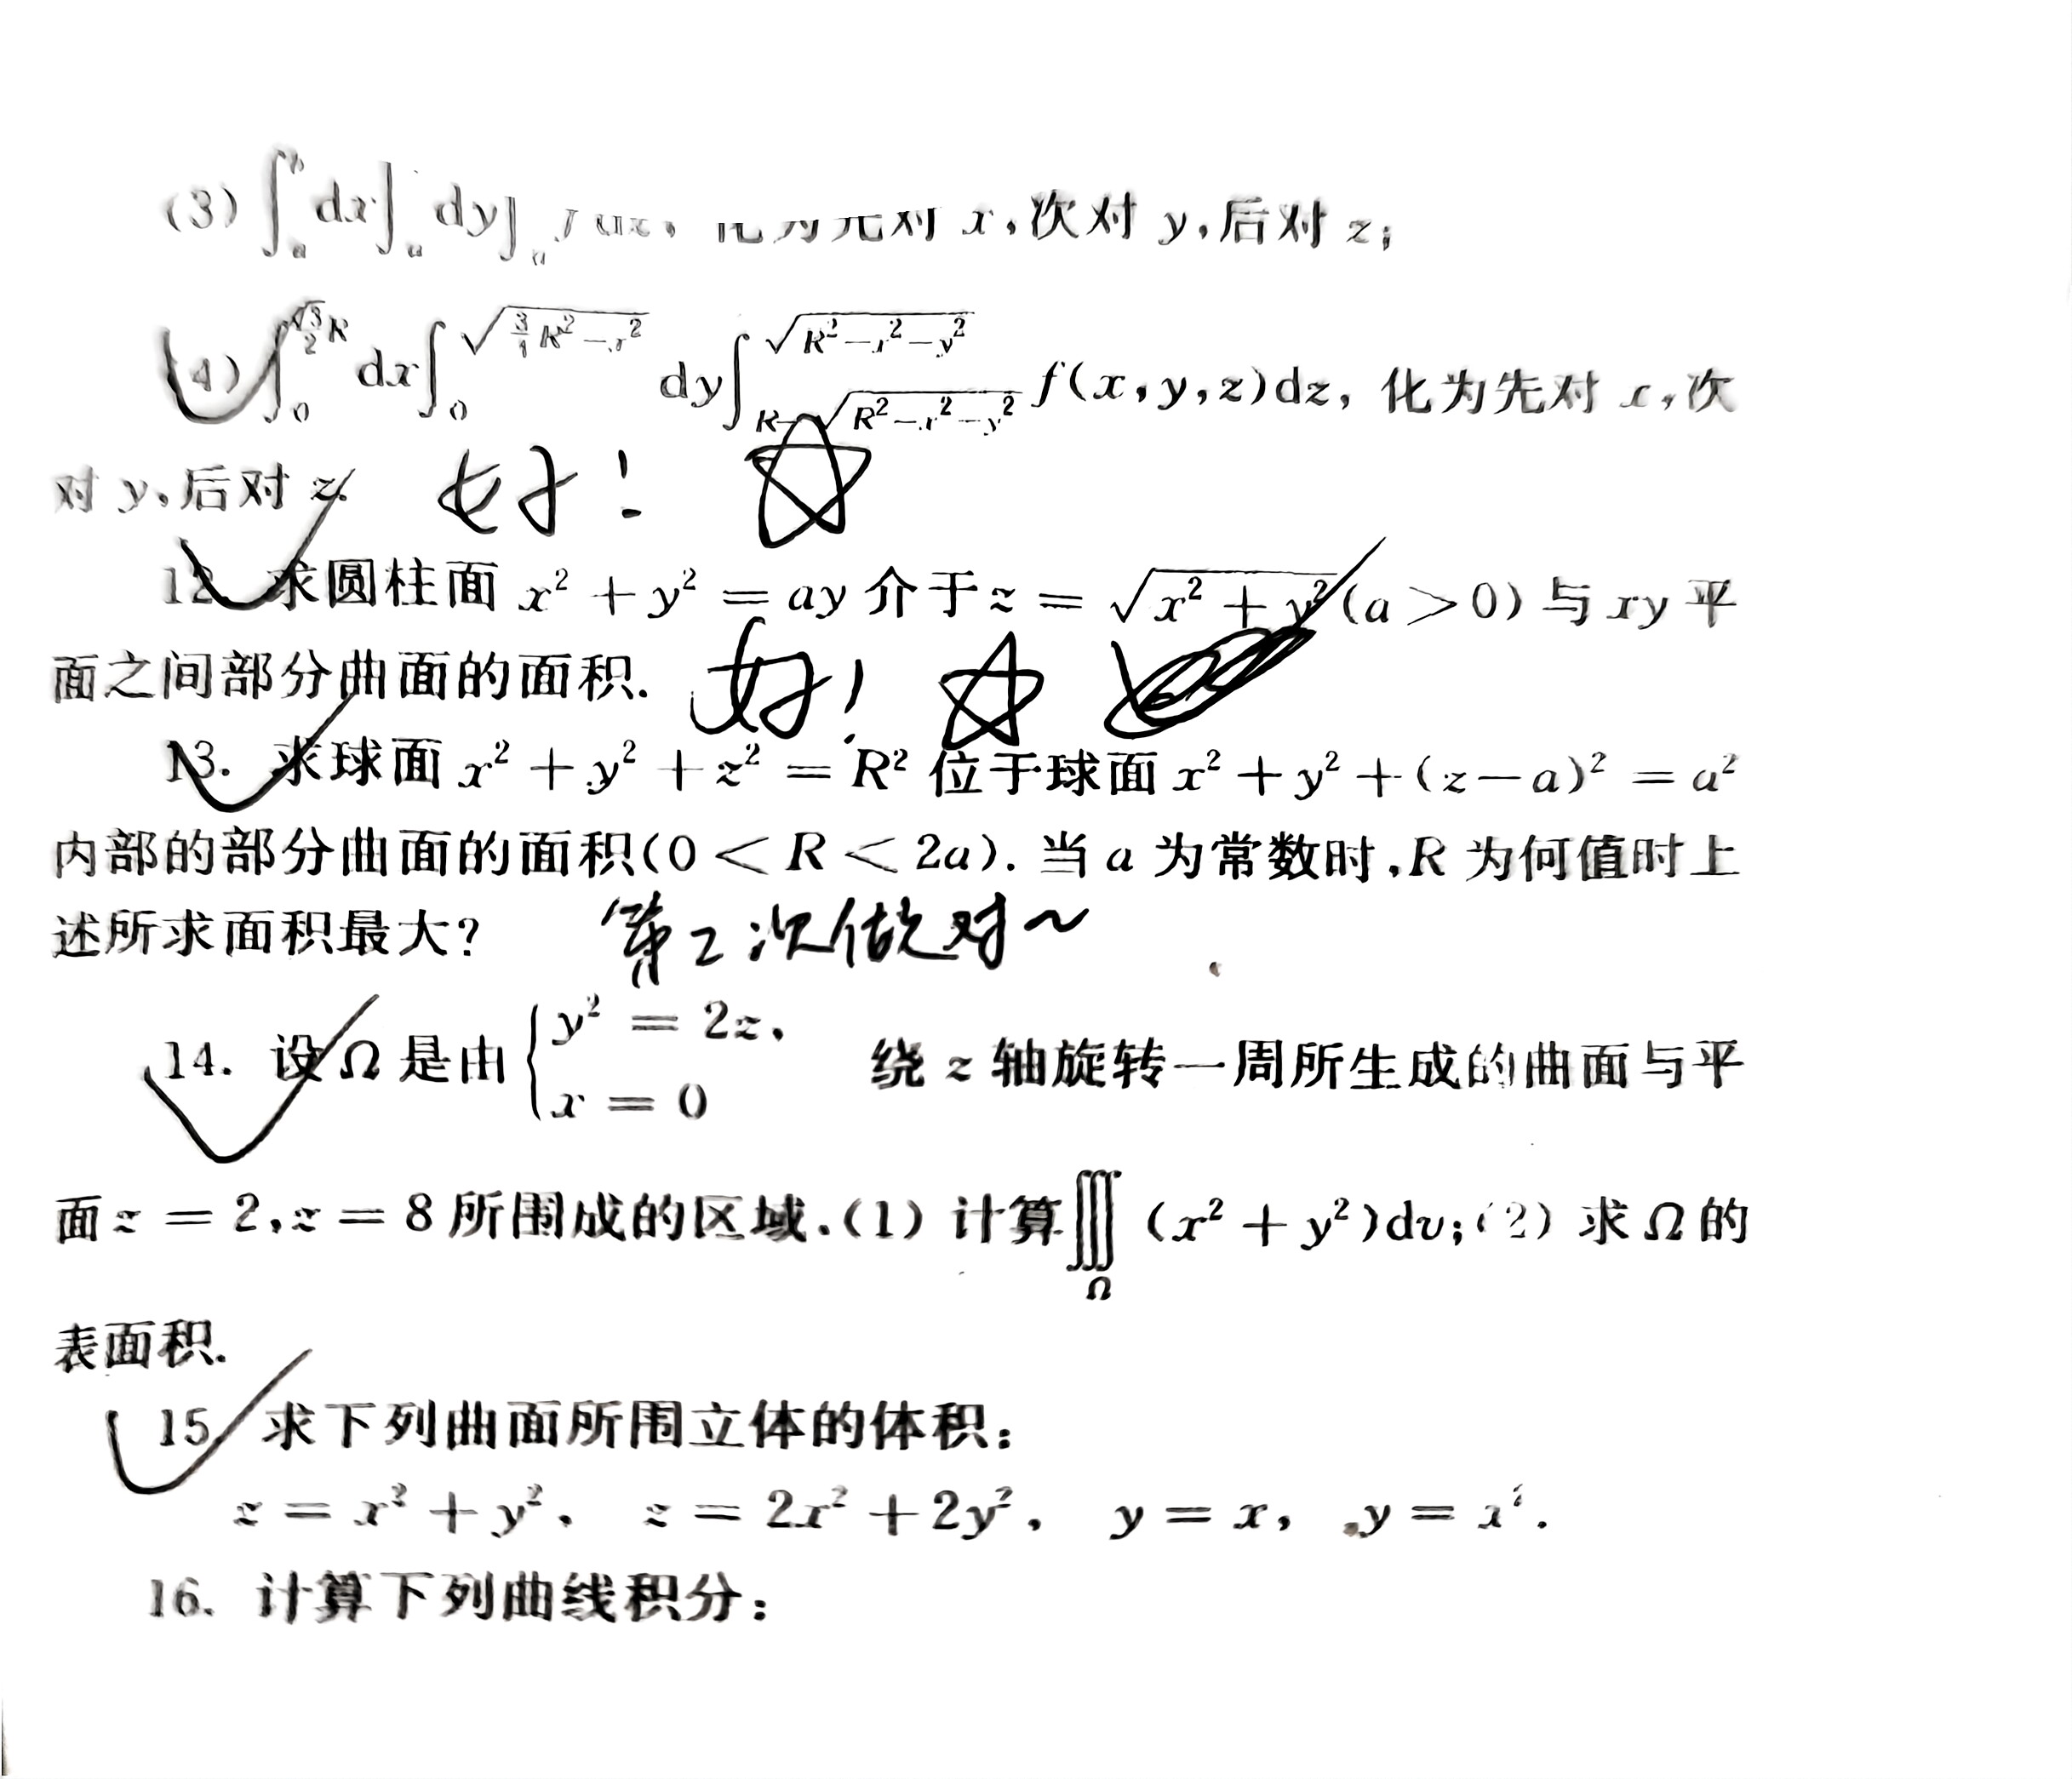 (3) ∫ dx∫ dy∫ 先对 x,次对 y,后对 z;
(4) ∫₀^{(√3/2)R} dx∫₀^{√(¾R²−x²)} dy∫_{R−√(R²−x²−y²)}^{√(R²−x²−y²)} f(x,y,z)dz, 化为先对 x,次
对 y,后对 z. 好! ☆
12. 求圆柱面 x² + y² = ay 介于 z = √(x² + y²) (a > 0) 与 xy 平
面之间部分曲面的面积. 好! ☆
13. 求球面 x² + y² + z² = R² 位于球面 x² + y² + (z − a)² = a²
内部的部分曲面的面积(0 < R < 2a). 当 a 为常数时,R 为何值时上
述所求面积最大? 第2次做对~
14. 设 Ω 是由 { y² = 2z, x = 0 绕 z 轴旋转一周所生成的曲面与平
面 z = 2,z = 8 所围成的区域.(1) 计算∭_Ω (x² + y²)dv;(2) 求 Ω 的
表面积.
15. 求下列曲面所围立体的体积:
z = x² + y², z = 2x² + 2y², y = x, y = x².
16. 计算下列曲线积分: